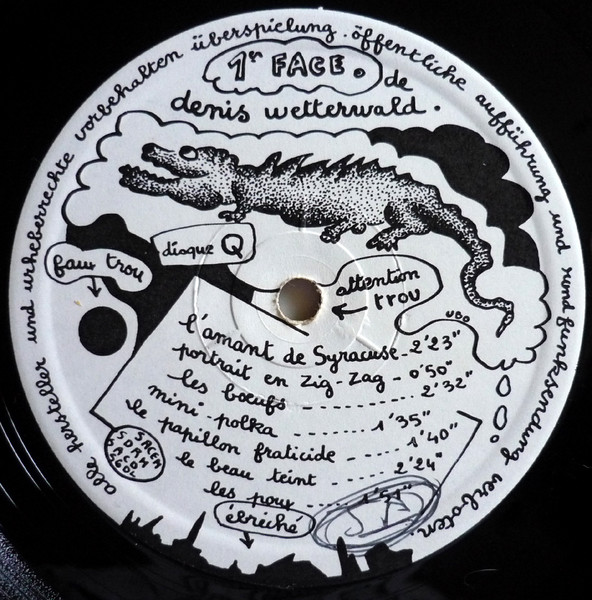 alle hersteller und urheberrechte vorbehalten überspielung . öffentliche aufführung und rundfunksendung verboten.
1er FACE. de
denis wetterwald.
disque Q
faux trou
attention
trou
UBO
l'amant de Syracuse - 2'23"
portrait en Zig-Zag - 0'50"
les bœufs 2'32"
mini-polka 1'35"
le papillon fraticide 1'40"
le beau teint 2'24"
les poux
ébréché
SACEM
SDRM